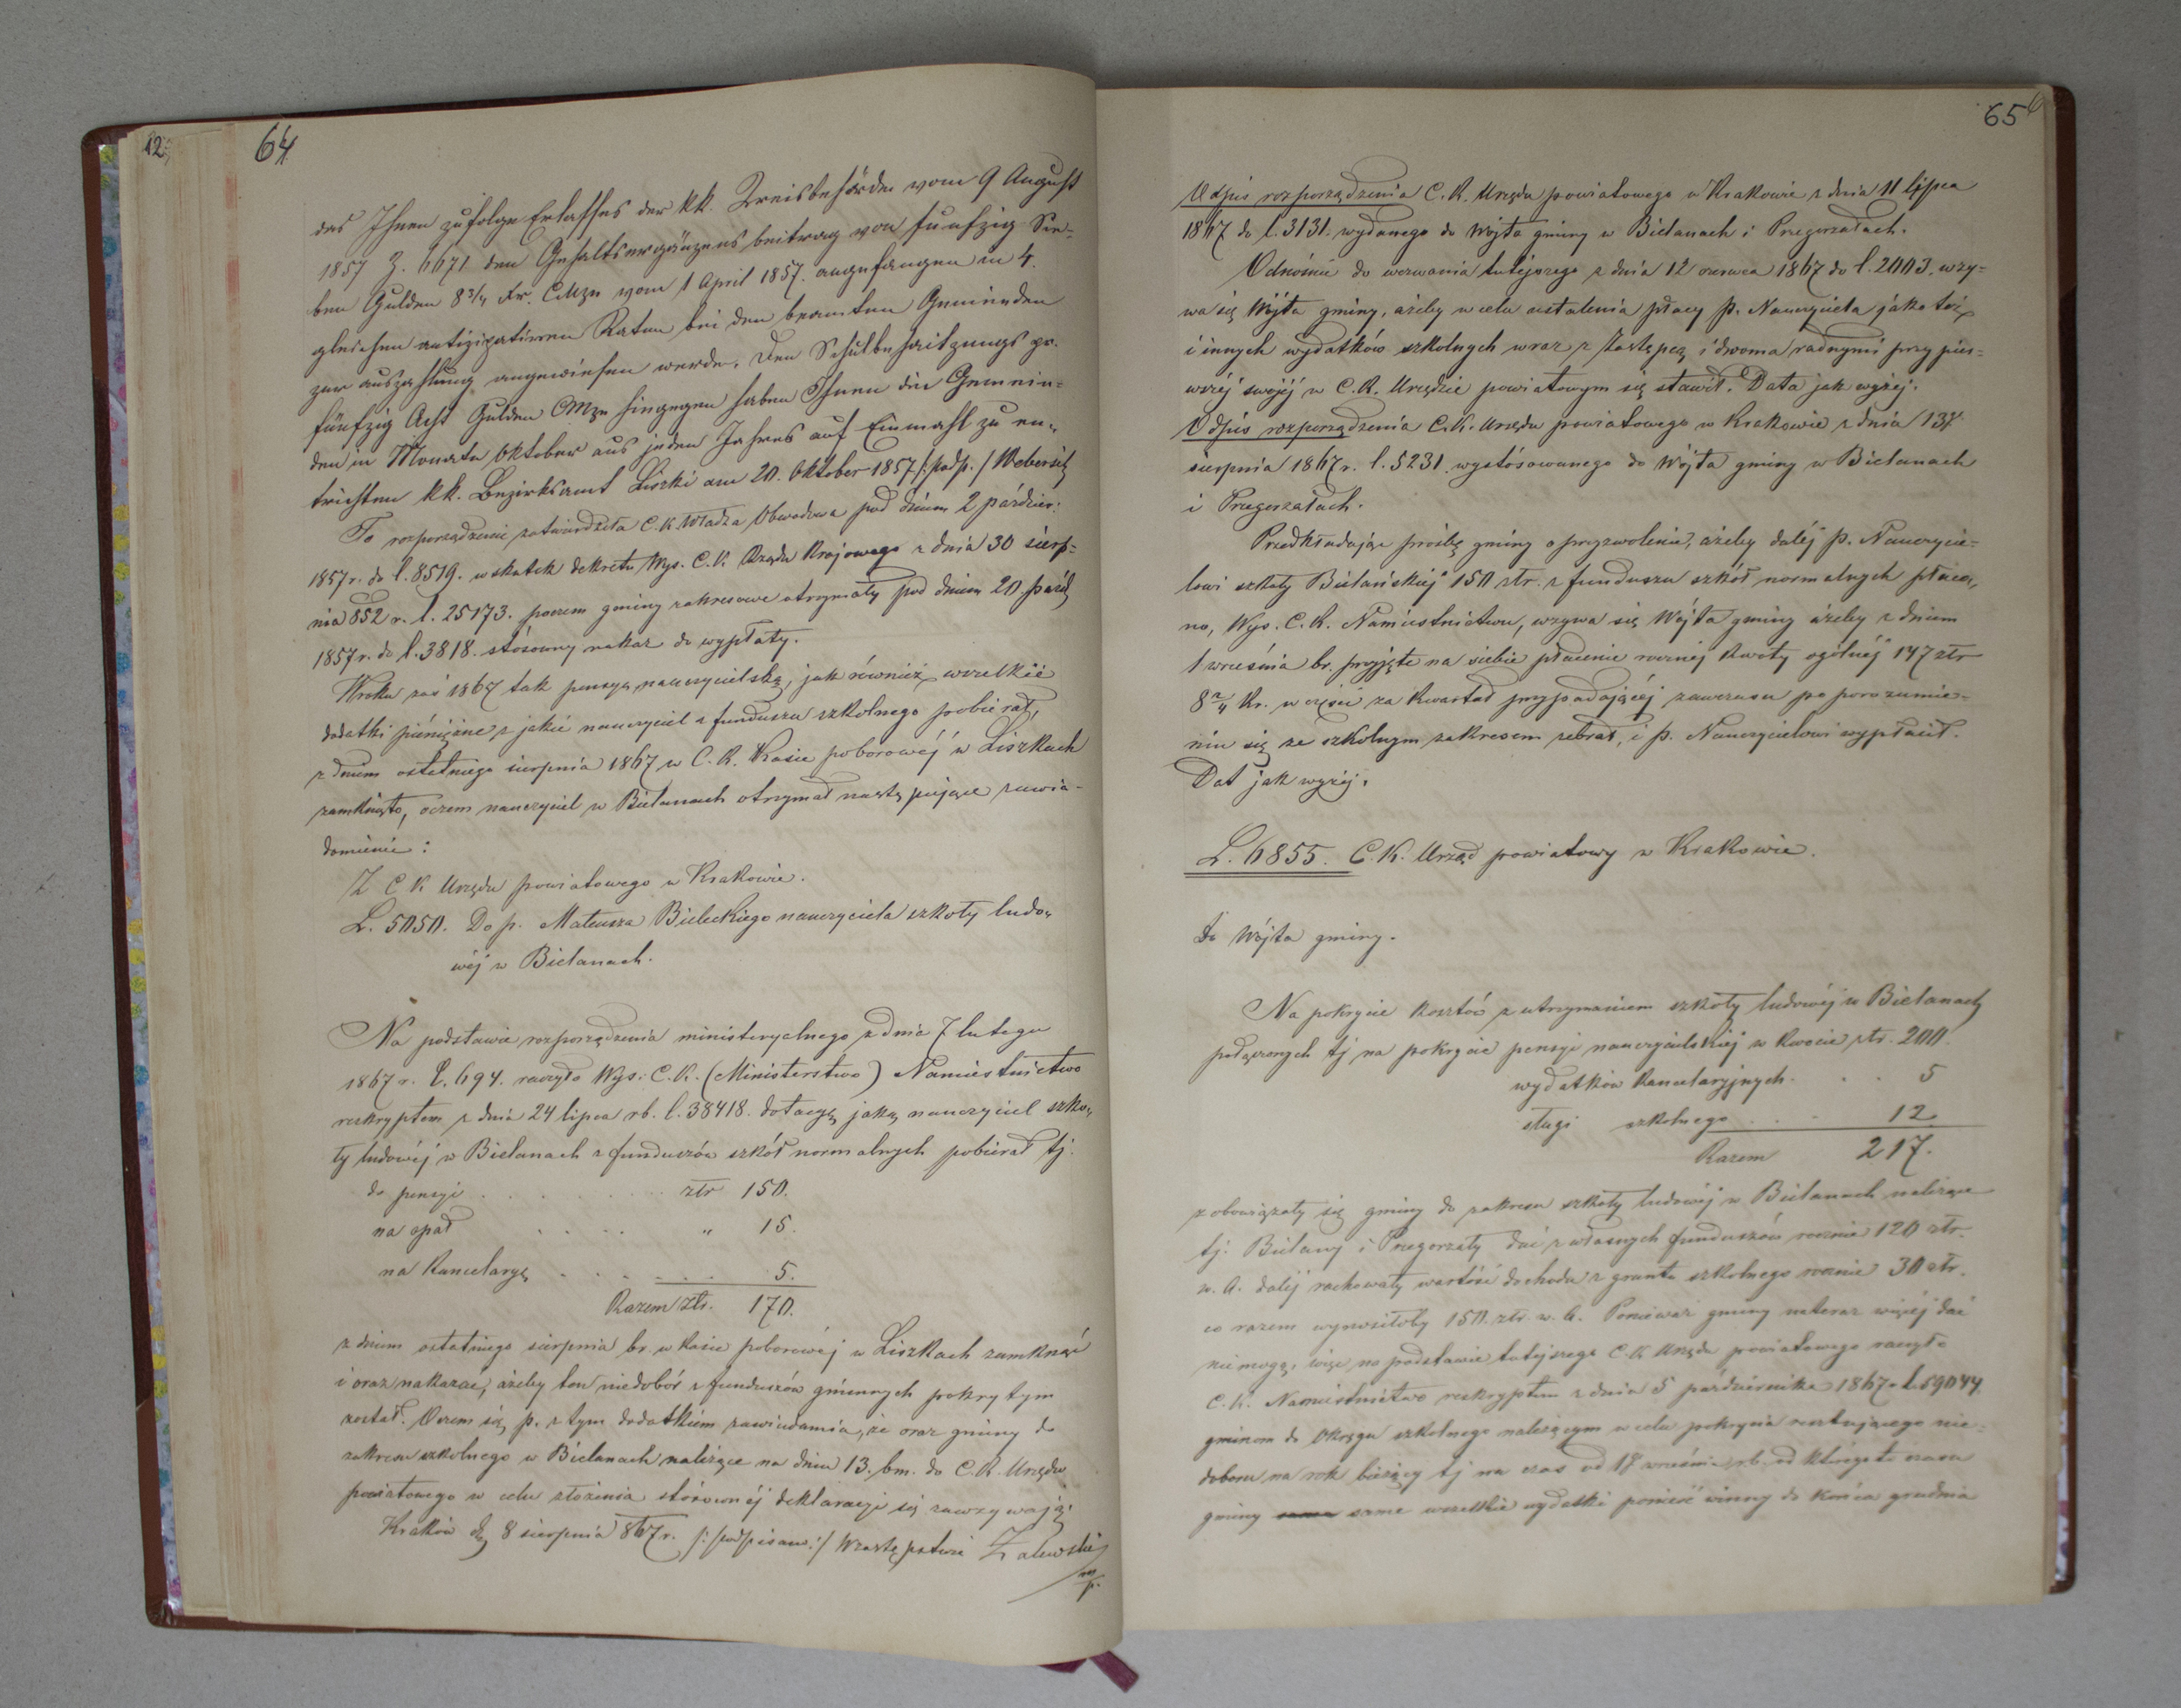 12
64
das Ihnen zufolge Erlasses der kk. Kreisbehörde vom 9 August
1857 Z. 6671 den Gehaltsergänzungsbeitrag von fünfzig Sie-
ben Gulden 8 3/4 Kr. CMze vom 1 April 1857. angefangen in 4.
gleichen antizipativen Raten bei den beamten Gemeinden
zur auszahlung angewiesen werde. Den Schulbeheitzungs pr.
fünfzig Acht Gulden CMze hingegen haben Ihnen die Gemein-
den im Monate Oktober aus jeden Jahres auf Einmahl zu en-
trichten kk. Bezirksamt Liszki am 20. Oktober 1857 /:podp./ Webersik
To rozporządzenie zatwierdziła C.K. Władza Obwodowa pod dniem 2 paździer:
1857 r. do l. 8519. wskutek dekretu Wys. C.K. Rządu Krajowego z dnia 30 sierp-
nia 852 r. l. 25173. poczem gminy zakresowe otrzymały pod dniem 20 paźd
1857 r. do l. 3818. stósowny nakaz do wypłaty.
W roku zaś 1867 tak pensyą nauczycielską, jak również wszelkie
dodatki pieniężne z jakie nauczyciel z funduszu szkolnego pobierał,
z dniem ostatniego sierpnia 1867 w C.K. Kasie poborowéj w Liszkach
zamknięto, oczem nauczyciel w Bielanach otrzymał następujące zawia-
domienie:
Z C.K. Urzędu powiatowego w Krakowie.
L. 5050. Do p. Mateusza Bieleckiego nauczyciela szkoły ludo-
wéj w Bielanach.
Na podstawie rozporządzenia ministeryalnego z dnia 7 lutego
1867 r. l. 694. raczyło Wys: C.K. (Ministerstwo) Namiestnictwo
reskryptem z dnia 24 lipca rb. l. 38418. dotacyę jaką nauczyciel szko-
ły ludowéj w Bielanach z funduszów szkół normalnych pobierał tj.
do pensyi . . . . . . złr 150.
na opał . . . . " 15.
na Kancelaryę . . . . . 5.
Razem złr. 170.
z dniem ostatniego sierpnia br. w Kasie poborowéj w Liszkach zamknąć
i oraz nakazać, ażeby ten niedobór z funduszów gminnych pokrytym
został. Oczem się p. z tym dodatkiem zawiadamia, że oraz gminy do
zakresu szkolnego w Bielanach należące na dniu 13. bm. do C.K. Urzędu
powiatowego w celu złożenia stósownéj deklaracyi się zawzywają.
Kraków dn 8 sierpnia 867 r. /:podpisano:/ W zastępstwie Zalewski
mp.
65
Odpis rozporządzenia C.K. Urzędu powiatowego w Krakowie z dnia 11 lipca
1867 do l. 3131. wydanego do Wójta gminy w Bielanach i Przegorzałach.
Odnośnie do wezwania tutéjszego z dnia 12 czerwca 1867 do l. 2003. wzy-
wa się Wójta gminy, ażeby w celu ustalenia płacy p. Nauczyciela jako też
i innych wydatków szkolnych wraz z Zastępcą i dwoma radnymi przy pier-
wszéj swojéj w C.K. Urzędzie powiatowym się stawił. Data jak wyżéj.
Odpis rozporządzenia C.K. Urzędu powiatowego w Krakowie z dnia 13go
sierpnia 1867 r. l. 5231. wystósowanego do Wójta gminy w Bielanach
i Przegorzałach.
Przedkładając prośbę gminy o przyzwolenie, ażeby daléj p. Nauczycie-
lowi szkoły Bielańskiéj 150 złr. z funduszu szkół normalnych płaco-
no, Wys. C.K. Namiestnictwu, wzywa się Wójta gminy ażeby z dniem
1 września br. przyjęte na siebie płacenie rocznéj Kwoty ogólnéj 147 złr
8 2/4 Kr. w części za Kwartał przypadającéj zawczasu po porozumie-
niu się ze szkolnym zakresem zebrał, i p. Nauczycielowi wypłacił.
Dat jak wyżéj.
L. 6855. C.K. Urząd powiatowy w Krakowie.
Do Wójta gminy.
Na pokrycie kosztów z utrzymaniem szkoły ludowéj w Bielanach
połączonych tj na pokrycie pensyi nauczycielskiéj w Kwocie złr. 200.
wydatków Kancelaryjnych . . . 5
sługi szkolnego . . . 12.
Razem 217.
zobowiązały się gminy do zakresu szkoły ludowéj w Bielanach należące
tj: Bielany i Przegorzały dać z własnych funduszów rocznie 120 złr.
w. a. daléj rachowały wartość dochodu z gruntu szkolnego rocznie 30 złr.
co razem wynosiłoby 150. złr. w. a. Ponieważ gminy nateraz więcéj dać
niemogą, więc na podstawie tutejszego C.K. Urzędu powiatowego raczyło
C.K. Namiestnictwo reskryptem z dnia 5 października 1867 r. l. 59044.
gminom do Okręgu szkolnego należącym w celu pokrycia resztującego nie-
doboru na rok bieżący tj na czas od 1go września rb. od któregoto czasu
gminy same wszelkie wydatki ponieść winny do końca grudnia